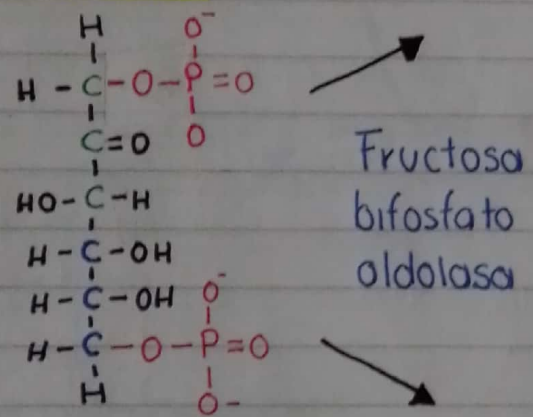 H O⁻
H - C - O - P = O
C = O O
HO - C - H
H - C - OH
H - C - OH O⁻
H - C - O - P = O
H O⁻
Fructosa
bifosfato
aldolasa